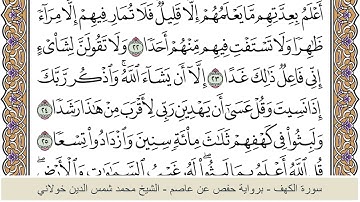 أَعْلَمُ بِعِدَّتِهِم مَّا يَعْلَمُهُمْ إِلَّا قَلِيلٌ فَلَا تُمَارِ فِيهِمْ إِلَّا مِرَآءً
ظَٰهِرًا وَلَا تَسْتَفْتِ فِيهِم مِّنْهُمْ أَحَدًا ٢٢ وَلَا تَقُولَنَّ لِشَا۟ىْءٍ
إِنِّى فَاعِلٌ ذَٰلِكَ غَدًا ٢٣ إِلَّآ أَن يَشَآءَ ٱللَّهُ وَٱذْكُر رَّبَّكَ
إِذَا نَسِيتَ وَقُلْ عَسَىٰٓ أَن يَهْدِيَنِ رَبِّى لِأَقْرَبَ مِنْ هَٰذَا رَشَدًا ٢٤
وَلَبِثُوا۟ فِى كَهْفِهِمْ ثَلَٰثَ مِا۟ئَةٍ سِنِينَ وَٱزْدَادُوا۟ تِسْعًا ٢٥
قُلِ ٱللَّهُ أَعْلَمُ بِمَا لَبِثُوا۟ لَهُۥ غَيْبُ ٱلسَّمَٰوَٰتِ وَٱلْأَرْضِ
سورة الكهف - برواية حفص عن عاصم - الشيخ محمد شمس الدين خولاني